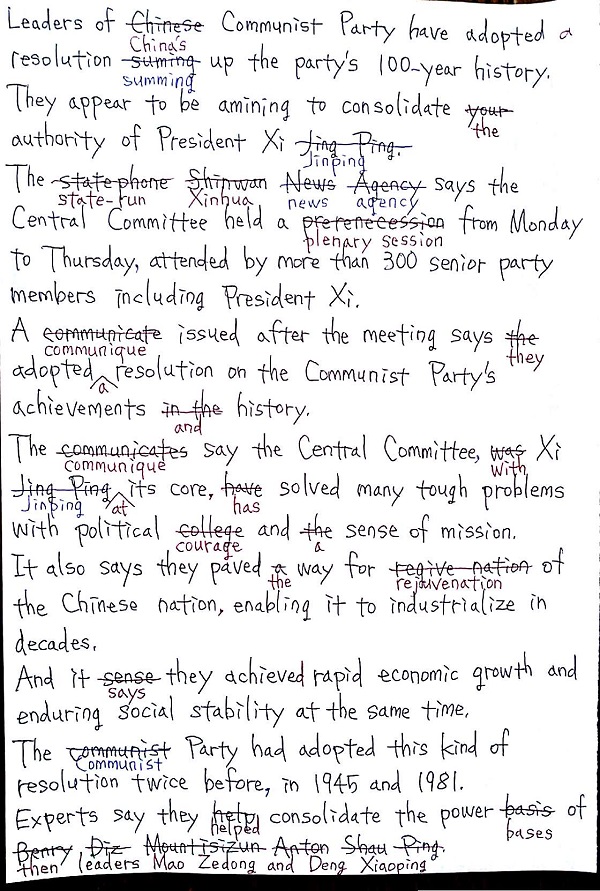 Leaders of Chinese Communist Party have adopted a
China's
resolution suming up the party's 100-year history.
summing
They appear to be amining to consolidate your
the
authority of President Xi Jing Ping.
Jinping
The state phone Shinwan News Agency says the
state-run Xinhua news agency
Central Committee held a prerenecession from Monday
plenary session
to Thursday, attended by more than 300 senior party
members including President Xi.
A communicate issued after the meeting says the
communique they
adopted resolution on the Communist Party's
a
achievements in the history.
and
The communicates say the Central Committee, was Xi
communique with
Jing Ping its core, have solved many tough problems
Jinping at has
with political college and the sense of mission.
courage a
It also says they paved a way for regive nation of
the rejuvenation
the Chinese nation, enabling it to industrialize in
decades.
And it sense they achieved rapid economic growth and
says
enduring social stability at the same time.
The communist Party had adopted this kind of
Communist
resolution twice before, in 1945 and 1981.
Experts say they help consolidate the power basis of
helped bases
Benry Diz Mountisizun Anton Shau Ping.
then leaders Mao Zedong and Deng Xiaoping